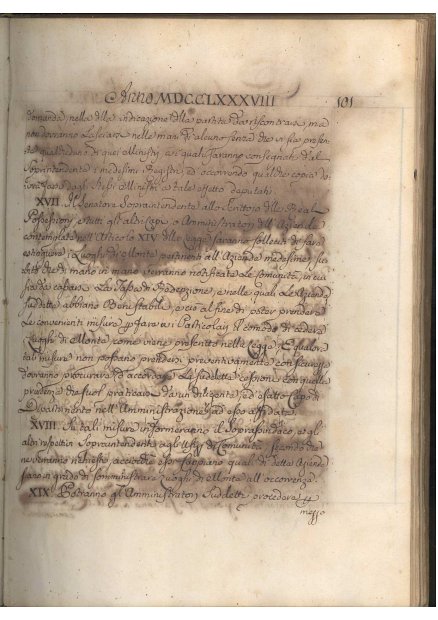 Anno MDCCLXXXVIII 101
domanda, nella indicazione della partita da riscontrarsi, ma
non dovranno lasciarsi nelle mani di alcuno senza che vi sia presen-
te qualcheduno di quei Ministri, a i quali saranno consegnati dal
Soprintendente i medesimi Registri, ed occorrendo qualche copia do-
dagli stessi Ministri a tale effetto deputati.
XVII Il Senatore Soprintendente allo Scrittoio delle Reali
Possessioni, e tutti gli altri Capi, o Amministratori delle Aziende
contemplate nell' Articolo XIV della Legge saranno solleciti di fare
i Luoghi di Monte pertinenti all' Aziende medesime, su-
bito che di mano in mano verranno notificate le Comunità, in cui
sia da caparsi la Tassa di Redenzione, e nelle quali le Aziende
suddette abbiano Beni stabili, e ciò al fine di poter prendere
le convenienti misure per fare ai Particolari il comodo di cedere
Luoghi di Monte come viene prescritto nella Legge. E qualora
tali misure non possano prendersi preventivamente con sicurezza
dovranno procurare di accordare le suddette cessioni con quella
prudenza che suol praticarsi da un diligente, ed esatto Capo di
Dipartimento nell' Amministrazione ad esso affidata.
XVIII Di tali misure informeranno il Soprasindaco, e gl'
altri respettivi Soprintendenti agli Ufizi di Comunità, secondo che
ne verranno richiesti, acciocchè essi sappiano quali di dette Aziende
siano in grado di somministrare Luoghi di Monte all' occorrenza.
XIX Potranno gl' Amministratori suddetti procedere per
mezzo